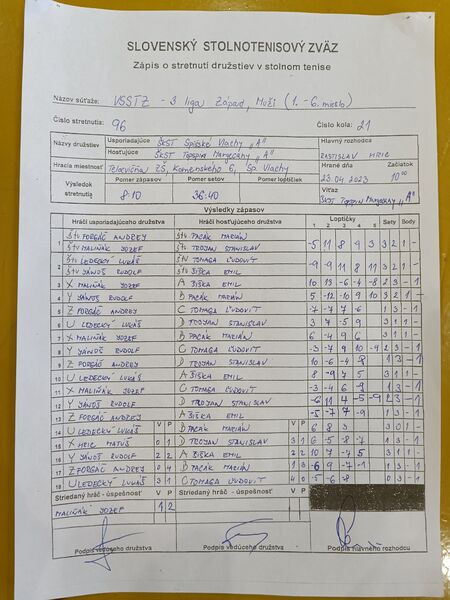 SLOVENSKÝ STOLNOTENISOVÝ ZVÄZ
Zápis o stretnutí družstiev v stolnom tenise
Názov súťaže: VSSTZ - 3 liga Západ, Muži (1. - 6. miesto)
Číslo stretnutia: 96 Číslo kola: 21
Názov družstiev Usporiadajúce ŠKST Spišské Vlachy "A" Hlavný rozhodca
Hosťujúce ŠKST Topspin Margecany "A" RASTISLAV HRIC
Hracia miestnosť Telocvičňa ZŠ, Komenského 6, Sp. Vlachy Hrané dňa Začiatok
Výsledok stretnutia Pomer zápasov Pomer setov Pomer loptičiek 23.04.2023 10:00
8:10 36:40 Víťaz
ŠKST Topspin Margecany "A"
Výsledky zápasov
Hráči usporiadajúceho družstva Hráči hosťujúceho družstva Loptičky Sety Body
1 2 3 4 5
1 Štv FORGÁČ ANDREJ Štv PACÁK MARIÁN -5 11 8 9 3 3 2 1 -
Štv MALIŇÁK JOZEF Štv TROJAN STANISLAV
2 Štv LEDECKÝ LUKÁŠ Štv TOMAGA ĽUDOVÍT -9 -9 11 8 11 3 2 1 -
Štv JÁNOŠ RUDOLF Štv ŠIŠKA EMIL
3 X MALIŇÁK JOZEF A ŠIŠKA EMIL 10 13 -6 -4 -8 2 3 - 1
4 Y JÁNOŠ RUDOLF B PACÁK MARIÁN 5 -12 10 9 10 3 2 1 -
5 Z FORGÁČ ANDREJ C TOMAGA ĽUDOVÍT -7 -7 7 6 1 3 - 1
6 U LEDECKÝ LUKÁŠ D TROJAN STANISLAV 3 7 -5 9 3 1 1 -
7 X MALIŇÁK JOZEF B PACÁK MARIÁN 6 -4 9 6 3 1 1 -
8 Y JÁNOŠ RUDOLF C TOMAGA ĽUDOVÍT -3 -7 9 10 -4 2 3 - 1
9 Z FORGÁČ ANDREJ D TROJAN STANISLAV 10 -6 -4 1 3 - 1
10 U LEDECKÝ LUKÁŠ A ŠIŠKA EMIL 8 -9 7 5 3 1 1 -
11 X MALIŇÁK JOZEF C TOMAGA ĽUDOVÍT -3 -4 6 1 3 - 1
12 Y JÁNOŠ RUDOLF D TROJAN STANISLAV -6 11 4 -5 -9 2 3 - 1
13 Z FORGÁČ ANDREJ A ŠIŠKA EMIL -5 -7 7 -9 1 3 - 1
14 U LEDECKÝ LUKÁŠ V P B PACÁK MARIÁN V P 6 8 3 3 0 1 -
15 X HRIC MATÚŠ 0 1 D TROJAN STANISLAV 3 1 6 -5 -8 -7 1 3 - 1
16 Y JÁNOŠ RUDOLF 2 2 A ŠIŠKA EMIL 2 2 10 7 -7 5 3 1 1 -
17 Z FORGÁČ ANDREJ 0 4 B PACÁK MARIÁN 1 3 -6 9 -7 1 3 - 1
18 U LEDECKÝ LUKÁŠ 3 1 C TOMAGA ĽUDOVÍT 4 0 -5 -6 -8 0 3 - 1
Striedaný hráč - úspešnosť V P Striedaný hráč - úspešnosť V P
MALIŇÁK JOZEF 1 2
Podpis vedúceho družstva Podpis vedúceho družstva Podpis hlavného rozhodcu